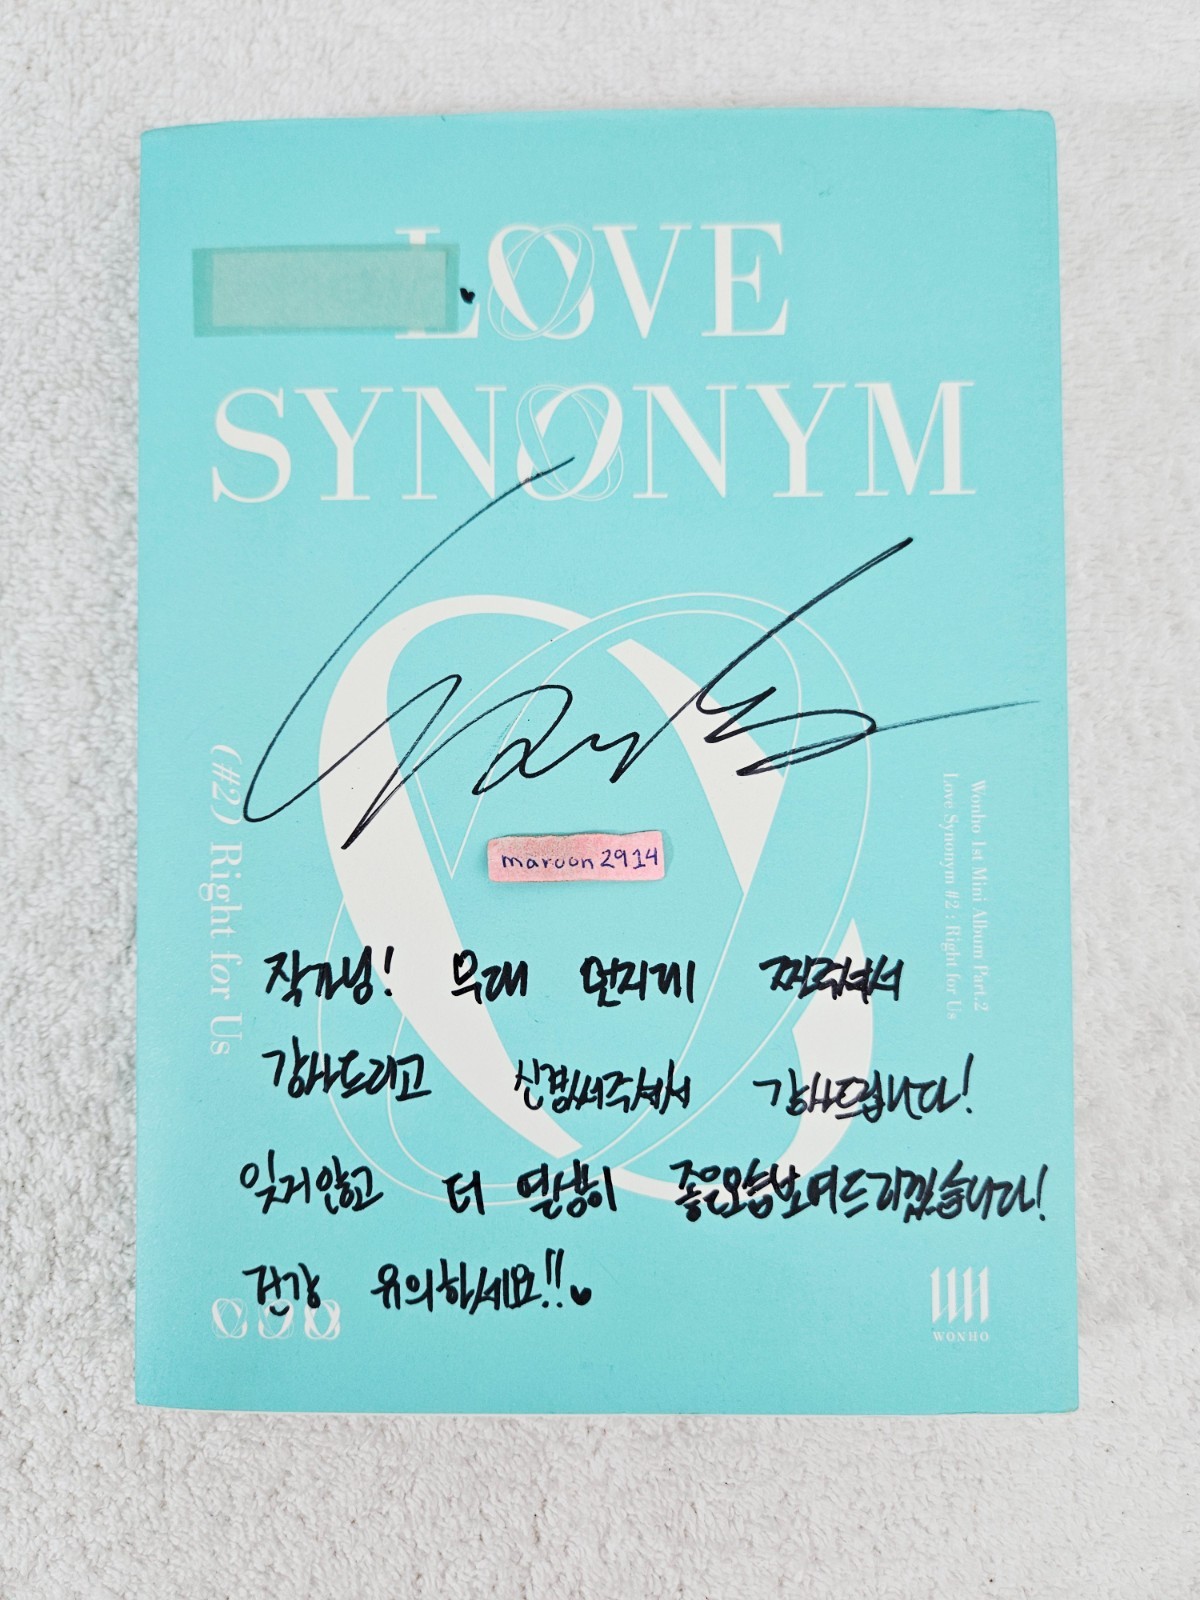 LOVE
SYNONYM
(#2) Right for Us
Wonho 1st Mini Album Part.2
Love Synonym #2 : Right for Us
maroon2914
작가님! 무대 멋지게 찍어주셔서
감사드리고 신경써주셔서 감사드립니다!
잊지않고 더 열심히 좋은모습보여드리겠습니다!
건강 유의하세요!!
WONHO